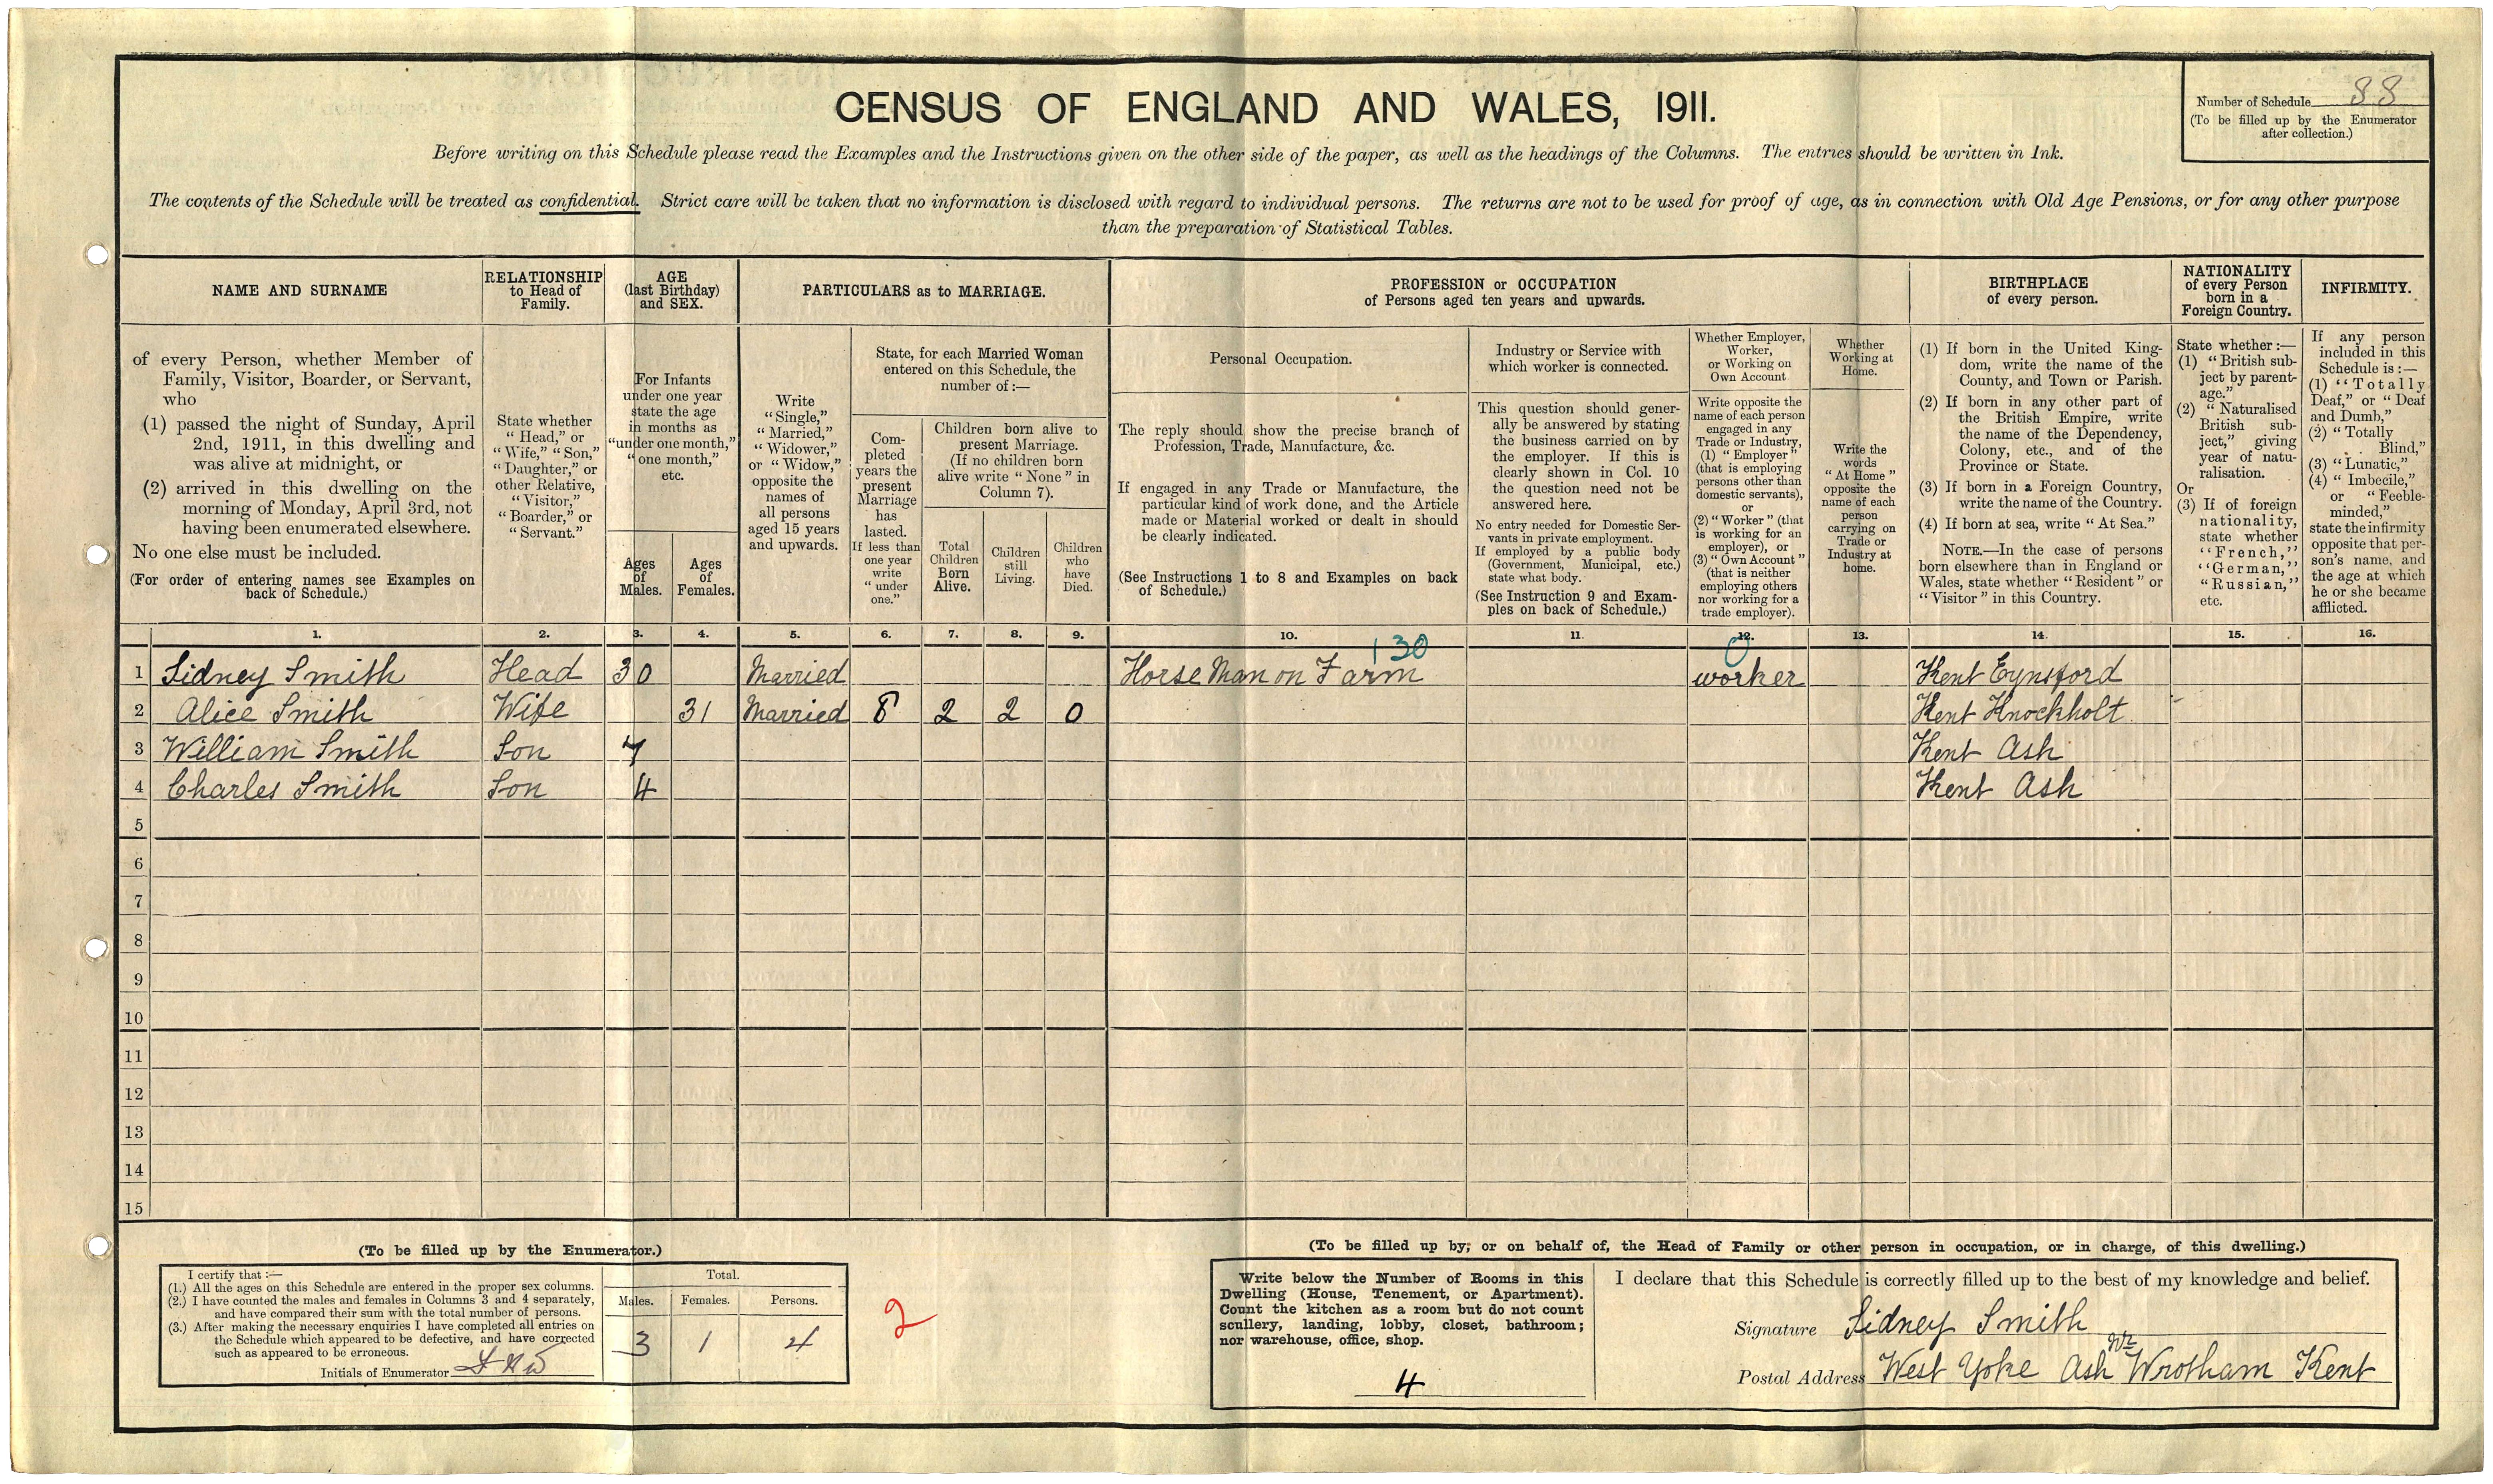 CENSUS OF ENGLAND AND WALES, 1911.
Number of Schedule 88
(To be filled up by the Enumerator
after collection.)
Before writing on this Schedule please read the Examples and the Instructions given on the other side of the paper, as well as the headings of the Columns. The entries should be written in Ink.
The contents of the Schedule will be treated as confidential. Strict care will be taken that no information is disclosed with regard to individual persons. The returns are not to be used for proof of age, as in connection with Old Age Pensions, or for any other purpose
than the preparation of Statistical Tables.
NAME AND SURNAME
RELATIONSHIP
to Head of
Family.
AGE
(last Birthday)
and SEX.
PARTICULARS as to MARRIAGE.
PROFESSION or OCCUPATION
of Persons aged ten years and upwards.
BIRTHPLACE
of every person.
NATIONALITY
of every Person
born in a
Foreign Country.
INFIRMITY.
of every Person, whether Member of
Family, Visitor, Boarder, or Servant,
who
(1) passed the night of Sunday, April
2nd, 1911, in this dwelling and
was alive at midnight, or
(2) arrived in this dwelling on the
morning of Monday, April 3rd, not
having been enumerated elsewhere.
No one else must be included.
(For order of entering names see Examples on
back of Schedule.)
State whether
"Head," or
"Wife," "Son,"
"Daughter," or
other Relative,
"Visitor,"
"Boarder," or
"Servant."
For Infants
under one year
state the age
in months as
"under one month,"
"one month,"
etc.
Ages
of
Males.
Ages
of
Females.
Write
"Single,"
"Married,"
"Widower,"
or "Widow,"
opposite the
names of
all persons
aged 15 years
and upwards.
State, for each Married Woman
entered on this Schedule, the
number of:—
Com-
pleted
years the
present
Marriage
has
lasted.
If less than
one year
write
"under
one."
Children born alive to
present Marriage.
(If no children born
alive write "None" in
Column 7).
Total
Children
Born
Alive.
Children
still
Living.
Children
who
have
Died.
Personal Occupation.
The reply should show the precise branch of
Profession, Trade, Manufacture, &c.
If engaged in any Trade or Manufacture, the
particular kind of work done, and the Article
made or Material worked or dealt in should
be clearly indicated.
(See Instructions 1 to 8 and Examples on back
of Schedule.)
Industry or Service with
which worker is connected.
This question should gener-
ally be answered by stating
the business carried on by
the employer. If this is
clearly shown in Col. 10
the question need not be
answered here.
No entry needed for Domestic Ser-
vants in private employment.
If employed by a public body
(Government, Municipal, etc.)
state what body.
(See Instruction 9 and Exam-
ples on back of Schedule.)
Whether Employer,
Worker,
or Working on
Own Account
Write opposite the
name of each person
engaged in any
Trade or Industry,
(1) "Employer"
(that is employing
persons other than
domestic servants),
or
(2) "Worker" (that
is working for an
employer), or
(3) "Own Account"
(that is neither
employing others
nor working for a
trade employer).
Whether
Working at
Home.
Write the
words
"At Home"
opposite the
name of each
person
carrying on
Trade or
Industry at
home.
(1) If born in the United King-
dom, write the name of the
County, and Town or Parish.
(2) If born in any other part of
the British Empire, write
the name of the Dependency,
Colony, etc., and of the
Province or State.
(3) If born in a Foreign Country,
write the name of the Country.
(4) If born at sea, write "At Sea."
NOTE.—In the case of persons
born elsewhere than in England or
Wales, state whether "Resident" or
"Visitor" in this Country.
State whether:—
(1) "British sub-
ject by parent-
age."
(2) "Naturalised
British sub-
ject," giving
year of natu-
ralisation.
Or
(3) If of foreign
nationality,
state whether
"French,"
"German,"
"Russian,"
etc.
If any person
included in this
Schedule is:—
(1) "Totally
Deaf," or "Deaf
and Dumb,"
(2) "Totally
Blind,"
(3) "Lunatic,"
(4) "Imbecile,"
or "Feeble-
minded,"
state the infirmity
opposite that per-
son's name, and
the age at which
he or she became
afflicted.
1. 2. 3. 4. 5. 6. 7. 8. 9. 10. 11. 12. 13. 14. 15. 16.
130 0
1 Sidney Smith Head 30 Married Horse Man on Farm worker Kent Eynsford
2 Alice Smith Wife 31 Married 8 2 2 0 Kent Knockholt
3 William Smith Son 7 Kent Ash
4 Charles Smith Son 4 Kent Ash
5
6
7
8
9
10
11
12
13
14
15
(To be filled up by the Enumerator.)
I certify that:—
(1.) All the ages on this Schedule are entered in the proper sex columns.
(2.) I have counted the males and females in Columns 3 and 4 separately,
and have compared their sum with the total number of persons.
(3.) After making the necessary enquiries I have completed all entries on
the Schedule which appeared to be defective, and have corrected
such as appeared to be erroneous.
Initials of Enumerator
Total.
Males. Females. Persons.
3 1 4
2
(To be filled up by, or on behalf of, the Head of Family or other person in occupation, or in charge, of this dwelling.)
Write below the Number of Rooms in this
Dwelling (House, Tenement, or Apartment).
Count the kitchen as a room but do not count
scullery, landing, lobby, closet, bathroom;
nor warehouse, office, shop.
4
I declare that this Schedule is correctly filled up to the best of my knowledge and belief.
Signature Sidney Smith
Postal Address West Yoke Ash Nr Wrotham Kent